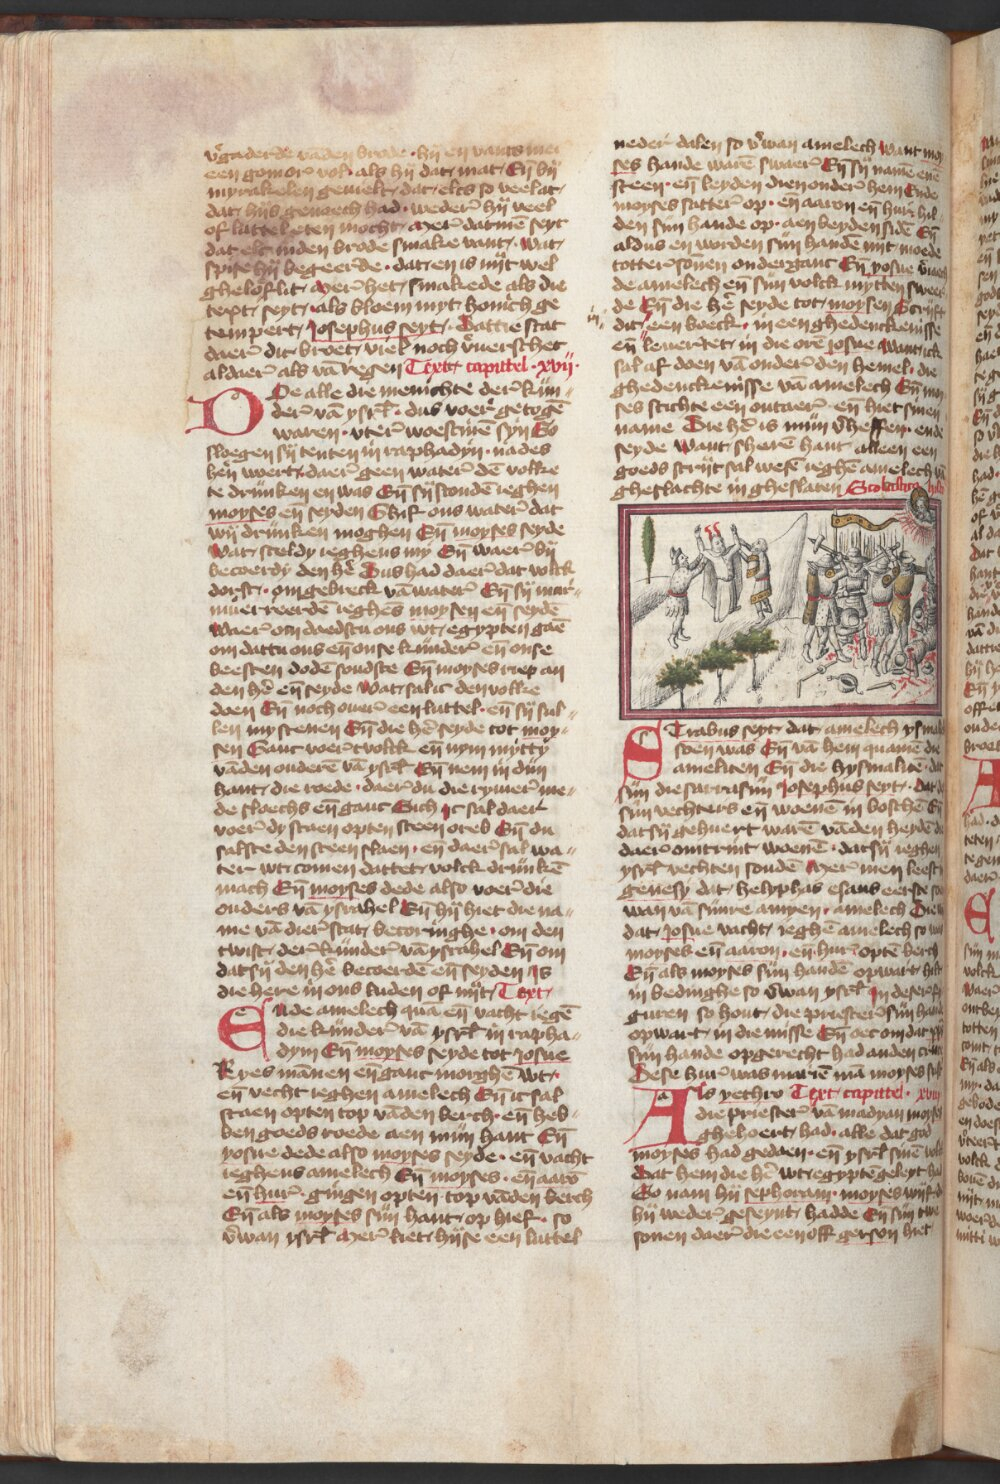 v̄gaderde vādē brode · hij en vants mer
een gomor vol · als hij dat mat · Eñ bij
myrakelen gevielt · dat elcs so veel at
dat hijs genoech had · weder hij veel
of luttel eten mocht · Mer datmē seyt
dat elc inden brode smake vant · wat
spise hij begeerde · dat en is nijt wel
gheloflic · Mer het smakede als die
text seyt · als bloem myt honich ge
tempert · Josephus seyt · Dattie stat
daer dit broet viel noch v̄uerschet
aldaer als vā regen Text capittel · xvij ·
DOe alle die menichte der kīn-
der vā ysrl̄ · dus voert getogē
waren · vter woestinē syn So
sloegen sij tenten in raphadijn · na des
herē woert · daer geen water dē volke
te drinken en was Eñ sij stondē ieghen
moyses en seyden Ghif ons water dat
wij drinken moghen Eñ moyses seyde
wat steldy ieghens mij Eñ waer bij
becoerdy den hē Dus had daer dat volck
dorst · om gebreck vā water Eñ sij mur-
mureerdē ieghēs moysen eñ seydē
waer om daedstu ons wt egypten gaē
om dattu ons eñ onse kinder eñ onse
beesten dodē soudste Eñ moyses riep an
den hē eñ seyde wat sal ic den volke
doen Eñ noch over een luttel · eñ sij sul-
len my stenen Eñ die hē seyde tot moy-
sen Ganc voer tvolck eñ nym mytty
vādē ouderē vā ysrl̄ Eñ nem in dijn
hant die roede · daer du die ryvier me-
de sloechs eñ ganc Sich ic sal daer
voer dy staen opten steen oreb Eñ du
salste den steen slaen · eñ daer sal wa-
ter wt comen dattet volck drinkē
mach Eñ moyses dede also voer die
ouders vā ysrahel Eñ hij hiet die na-
me vā dier stat becoringhe · om den
twist der kinder vā ysrahel Eñ om
dat sij den hē becoerdē eñ seyden Is
die here in ons luden of nijt Text
ENde amelech quā eñ vacht iegē
die kinder vā ysrl̄ in rapha-
dym Eñ moyses seyde tot Josue
Kyes mānen eñ ganc morghē wt ·
eñ vecht ieghen amelech Eñ ic sal
staen opten top vādē berch · eñ heb-
ben goeds roede aen mijn hant Eñ
yosue dede also moyses seyde · eñ vacht
ieghens amelech Eñ moyses · eñ aarō
eñ hur · gingen opten top vādē berch
Eñ als moyses sijn hant op hief · so
v̄wan ysrl̄ Mer liet hijse een luttel
neder dalen so v̄wan amelech want moy
ses hande warē swaer Eñ sij namē enē
steen · eñ leyden dien onder hem Ende
moyses satter op · eñ aaron eñ hur hil-
den sijn hande op · aen beyden sidē Eñ
aldus en worden sijn handē nit moede
totter sonnen onderganc Eñ yosue v̄iaech
de amelech eñ sijn volck mytten sweer
de Eñ die hē seyde tot moysen Scrijft
dit een boeck · in een ghedenckenisse
eñ levertet in die orē josue want ick
sal af doen vā onder den hemel · die
ghedenckenisse vā amelech Eñ moy
ses stichte een outaer · eñ hiet sinen
name Die hē is mijn v̄heffen · ende
seyde want sherē hant alleen een
goeds strijt sal wesē ieghē amelech vā
gheslachte in gheslaten Scolastica hist
STrabus seyt dat amelech ysmahels
soen was Eñ vā hem quamē die
ameliten Eñ die hysmalitē · dat
sijn die sarrasijn Josephus seyt · Dat dit
sijn vechters eñ woenē in bosschē Eñ
dat sij gehuert warē vādē heydē die
daer omtrint woenē · dat sij ieghen
ysrl̄ vechten soudē Mer men leest in
genesy dat helyphas esaus eerste soen
wan vā sinre amyen · amelech Die
dat josue vacht ieghē amelech so was
moyses eñ aaron · eñ hur opte berch
Eñ als moyses sijn handē opwart hief
in bedinghe so v̄wan ysrl̄ In deser fi
guren so hout die priester sijn hande
opwart in die misse Eñ oec om dat xps
sijn hande opgerecht had anden cruce
Dese hur was mariē mā moyses suster
Als yethro Text capittel · xviij
die priester vā madyan moyses
ghehoert had · alle dat god
moysen had gedaen · eñ ysrl̄ sinē volke
Dat hem die hē wt egyptē geleyt had
So nam hij sephoram · moyses wijf die
hij weder geseynt hadde Eñ sijn twe
sonen daer die een off gerson hiet